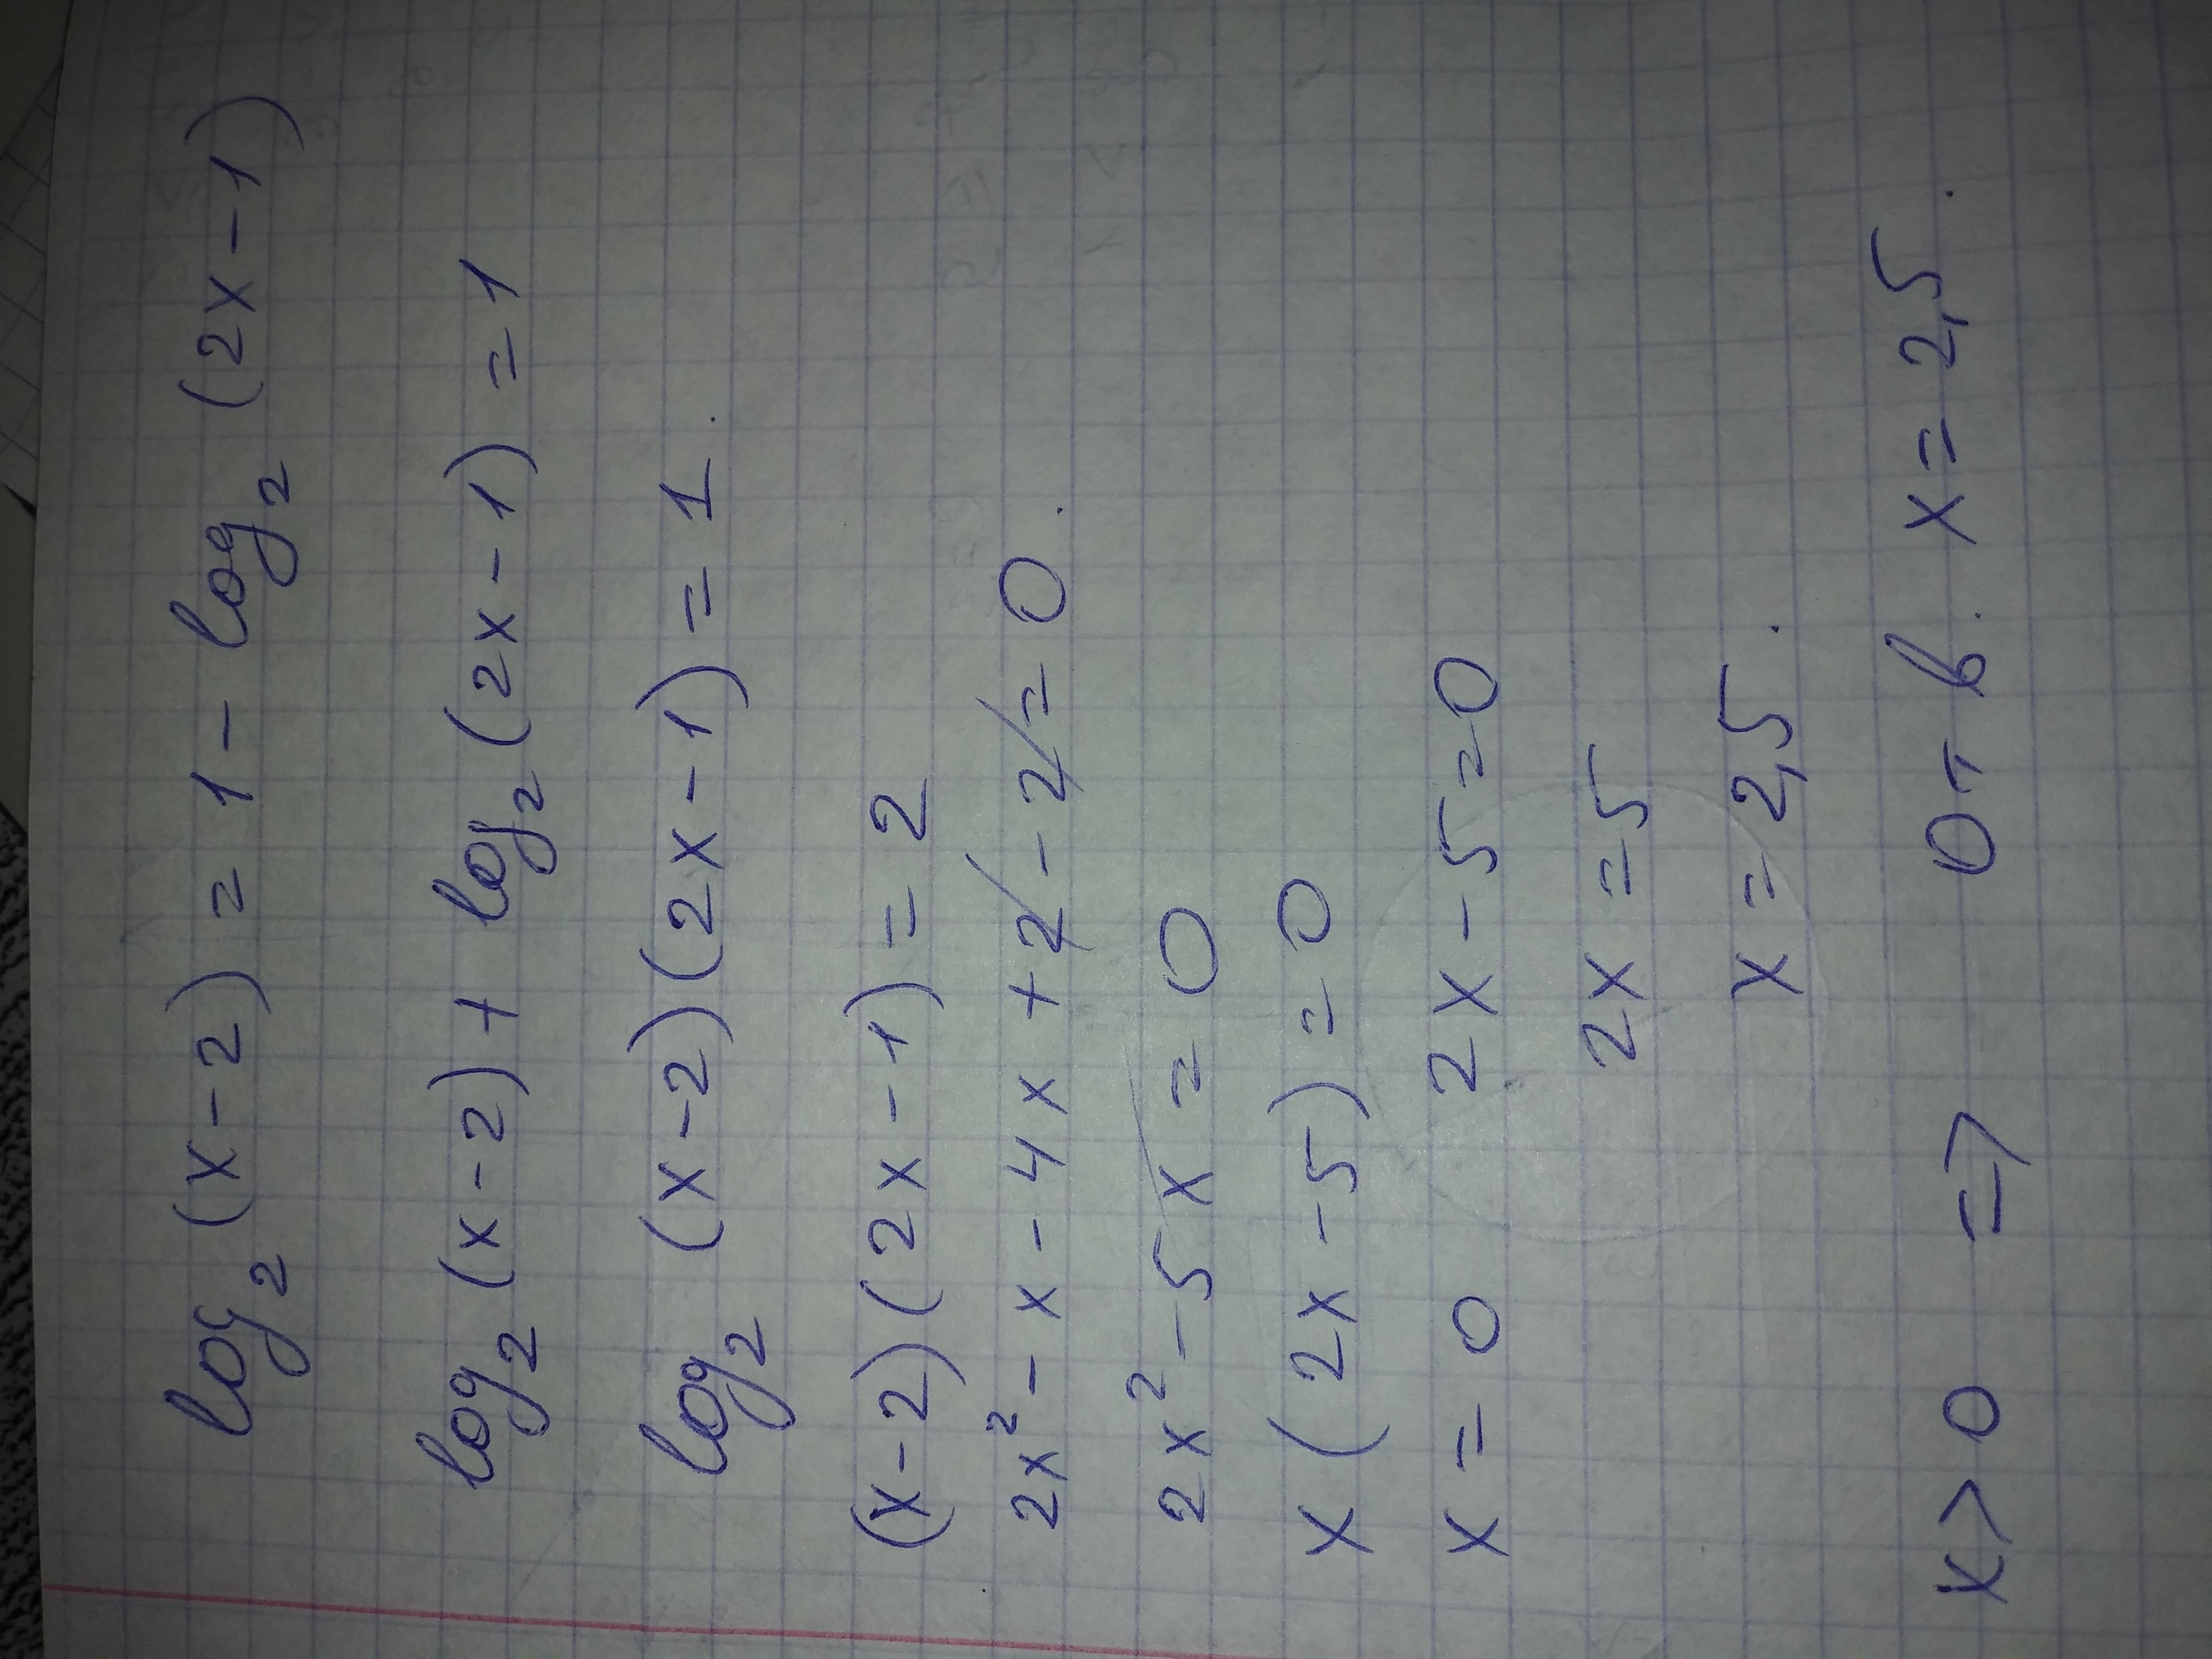 log₂(x-2)=1-log₂(2x-1)
log₂(x-2)+log₂(2x-1)=1
log₂(x-2)(2x-1)=1.
(x-2)(2x-1)=2
2x²-x-4x+2-2=0.
2x²-5x=0
x(2x-5)=0
x=0 2x-5=0
2x=5
x=2,5.
x>0 => Отв. x=2,5.